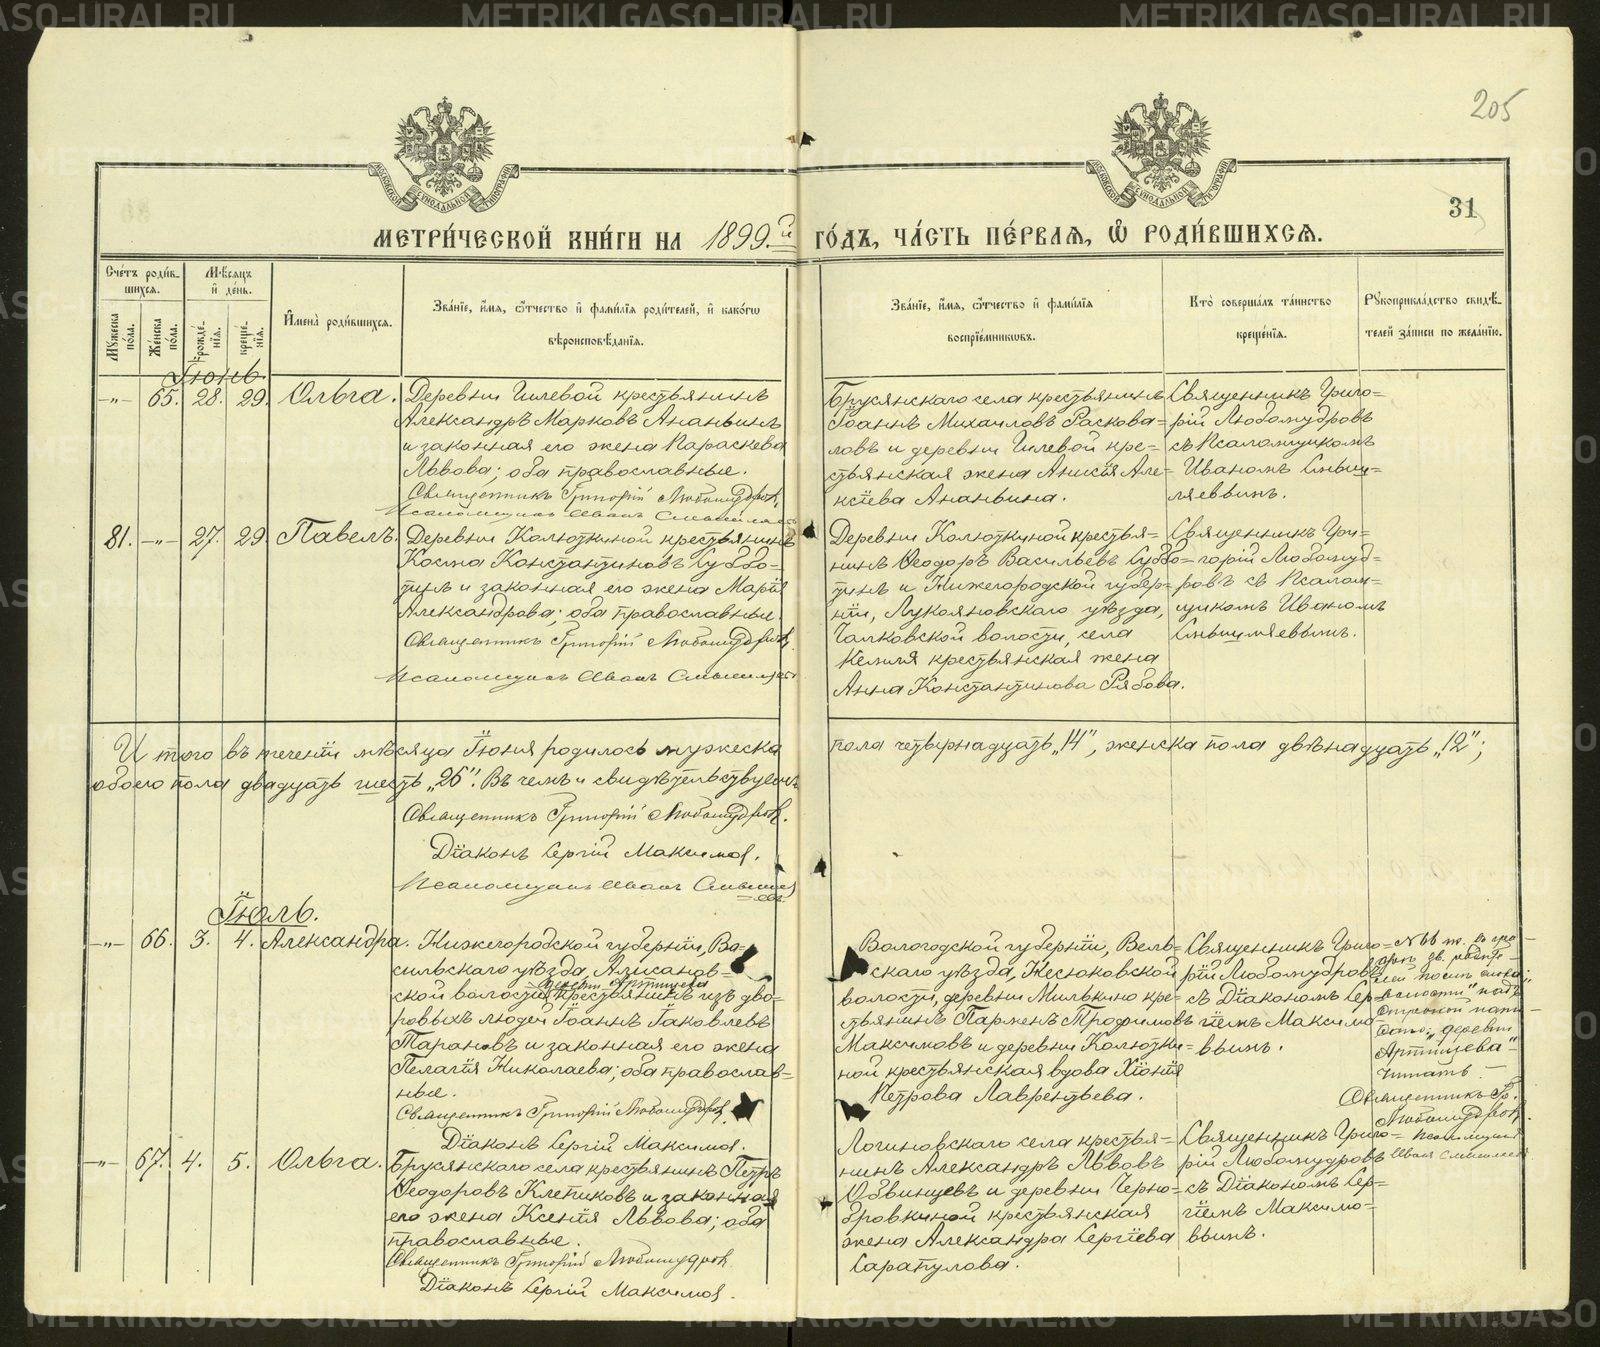 METRIKI.GASO-URAL.RU
205
31
МЕТРИ́ЧЕСКОЙ КНИ́ГИ НА 1899.й ГО́ДЪ, ЧА́СТЬ ПЕ́РВАЯ, Ѡ РОДИ́ВШИХСЯ.
Счетъ родившихся.
Мужеска пола.
Женска пола.
Мѣсяцъ и день.
рожденія.
крещенія.
Имена родившихся.
Званіе, имя, отчество и фамилія родителей, и какого
вѣроисповѣданія.
Званіе, имя, отчество и фамилія
воспріемниковъ.
Кто совершалъ таинство
крещенія.
Рукоприкладство свидѣ-
телей записи по желанію.
Іюнь
-"- 65. 28. 29. Ольга.
Деревни Гилевой крестьянинъ
Александръ Марковъ Ананьинъ
и законная его жена Параскева
Львова; оба православные.
Священникъ Григорій Любомудровъ
Псаломщикъ Иванъ
Брусянскаго села крестьянинъ
Іоаннъ Михаиловъ Расковa-
ловъ и деревни Гилевой кре-
стьянская жена Анисія Але-
ксіева Ананьина.
Священникъ Григо-
рій Любомудровъ
съ Псаломщикомъ
Иваномъ Смыш-
ляевымъ.
81. -"- 27. 29. Павелъ.
Деревни Колюткиной крестьянинъ
Косма Константиновъ Суббо-
тинъ и законная его жена Марія
Александрова; оба православные.
Священникъ Григорій Любомудровъ
Псаломщикъ Иванъ
Деревни Колюткиной крестья-
нинъ Ѳеодоръ Васильевъ Суббо-
тинъ и Нижегородской губер-
ніи, Лукояновскаго уѣзда,
волости, села
Кемля крестьянская жена
Анна Константинова Рябова.
Священникъ Гри-
горій Любомуд-
ровъ съ Псалом-
щикомъ Иваномъ
Смышляевымъ.
И того въ теченіи мѣсяца Іюня родилось мужеска
пола четырнадцать „14“, женска пола двѣнадцать „12“;
обоего пола двадцать шесть „26“. Въ чемъ и свидѣтельствуемъ
Священникъ Григорій Любомудровъ.
Діаконъ Сергій Максимовъ.
Псаломщикъ Иванъ
Іюль.
-"- 66. 3. 4. Александра.
Нижегородской губерніи, Ва-
сильскаго уѣзда,
ской волости,
деревни Артищева
крестьянинъ изъ дво-
ровыхъ людей Іоаннъ Іаковлевъ
Тарановъ и законная его жена
Пелагія Николаева; оба православ-
ные.
Священникъ Григорій Любомудровъ
Діаконъ Сергій Максимовъ.
Вологодской губерніи, Вель-
скаго уѣзда,
волости, деревни Милькино кре-
стьянинъ Парменъ Трофимовъ
Максимовъ и деревни Колютки-
ной крестьянская вдова Хіонія
Петрова Лаврентьева.
Священникъ Григо-
рій Любомудровъ
съ Діакономъ Сер-
гіемъ Максимо-
вымъ.
№ 66 ж. въ гра-
фѣ зв. родите-
лей послѣ слова:
„волости“ надъ
строкой напи-
сано: „деревни
Артищева“
читать.
Священникъ Гр.
Любомудровъ.
Псаломщикъ
Иванъ
-"- 67. 4. 5. Ольга.
Брусянскаго села крестьянинъ Петръ
Ѳеодоровъ Клепиковъ и законная
его жена Ксенія Львова; оба
православные.
Священникъ Григорій Любомудровъ.
Діаконъ Сергій Максимовъ.
Логиновскаго села крестья-
нинъ Александръ Львовъ
Обвинцевъ и деревни Черно-
бровкиной крестьянская
жена Александра Сергіева
Сарапулова.
Священникъ Григо-
рій Любомудровъ
съ Діакономъ Сер-
гіемъ Максимо-
вымъ.